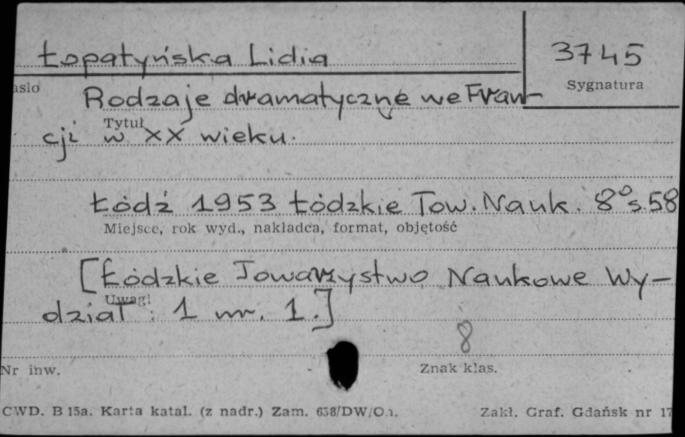 Łopatyńska Lidia
3745
asło
Sygnatura
Rodzaje dramatyczne we Fran-
Tytuł
cji w XX wieku.
Łódź 1953 Łódzkie Tow. Nauk. 8° s. 58
Miejsce, rok wyd., nakładca, format, objętość
[Łódzkie Towarzystwo Naukowe Wy-
Uwagi
dział: 1 nr. 1.]
8
Nr inw.
Znak klas.
CWD. B 15a. Karta katal. (z nadr.) Zam. 638/DW/O.
Zakł. Graf. Gdańsk nr 17